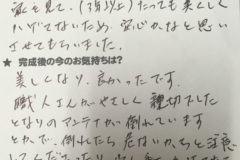 を見て、(1年以上)たっても美しく
ハゲてないため、安心かなと思い
させてもらいました。
★ 完成後の今のお気持ちは?
美しくなり、良かったです。
職人さんがやさしく親切でした
となりのアンテナが倒れています
とかで、倒れたら危ないから、と注意